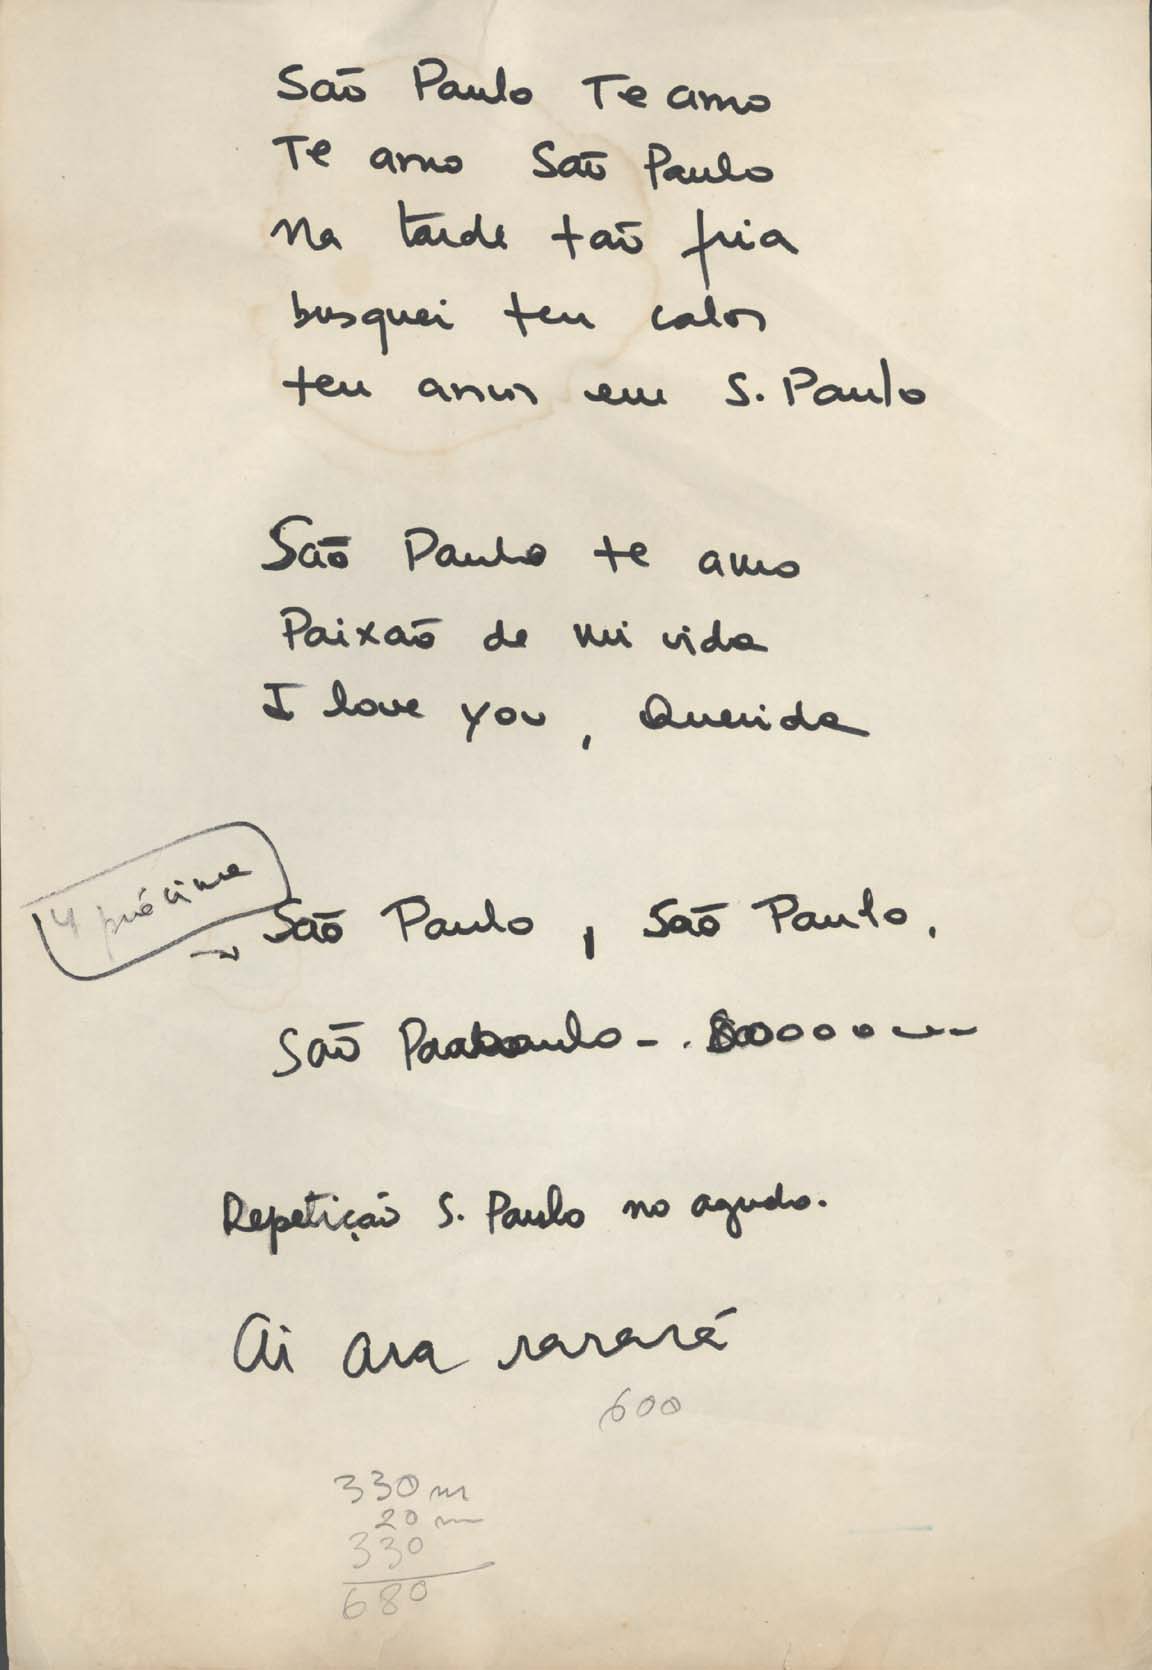 São Paulo Te amo
Te amo São Paulo
Na tarde tão fria
busquei teu calor
teu amor em S. Paulo
São Paulo te amo
Paixão de mi vida
I love you, Querida
4 próxima
São Paulo, São Paulo,
São Paulo - . ooooo
Repetição S. Paulo no agudo.
Ai ara rarará
600
330 m
20 m
330
680